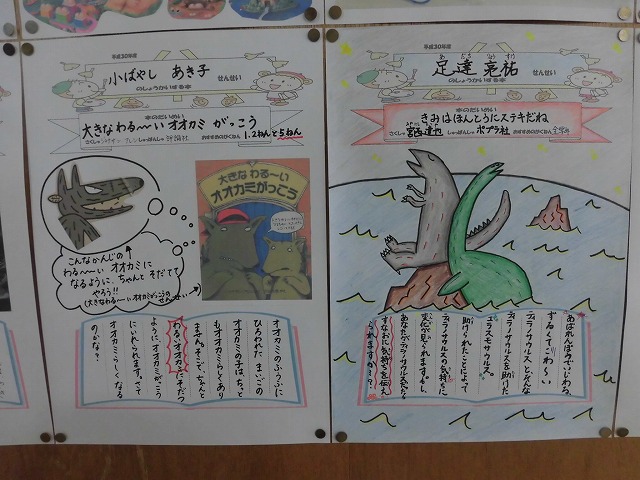 平成30年度
小ばやし あき子 せんせい
のしょうかいする本
本のだいめい
大きなわる〜いオオカミ がっこう
さくしゃ しゅっぱんしゃ 評論社 おすすめのがくねん 1.2ねんと5ねん
大きな わる〜い
オオカミがっこう
こんなかんじの
わる〜〜い オオカミに
なるように、ちゃんと そだてて
やろう!!
(大きなわる〜い オオカミがっこうの
せんせい)
オオカミのふうふに
ひろわれた まいごの
オオカミの子は、ちっと
もオオカミらしくあり
ません。そこで、ちゃんと
わるいオオカミにそだつ
ように オオカミがっこう
にいれられます。さて
オオカミらしく なる
のかな?
平成30年度
あ だち りょう すけ
足達 亮祐 せんせい
のしょうかいする本
本のだいめい
きみはほんとうにステキだね
さくしゃ 宮西達也 しゅっぱんしゃ ポプラ社 おすすめのがくねん 全学年
あばれんぼうでいじわる、
ずるくてこわ〜い
ティラノサウルスと、そんな
ティラノサウルスを助けた
エラスモサウルス。
助けられたことによって
ティラノサウルスの気持ちに
変化が見られます。もし、
あなたがティラノサウルスだったら
すなおに気持ちを伝え
られますか??